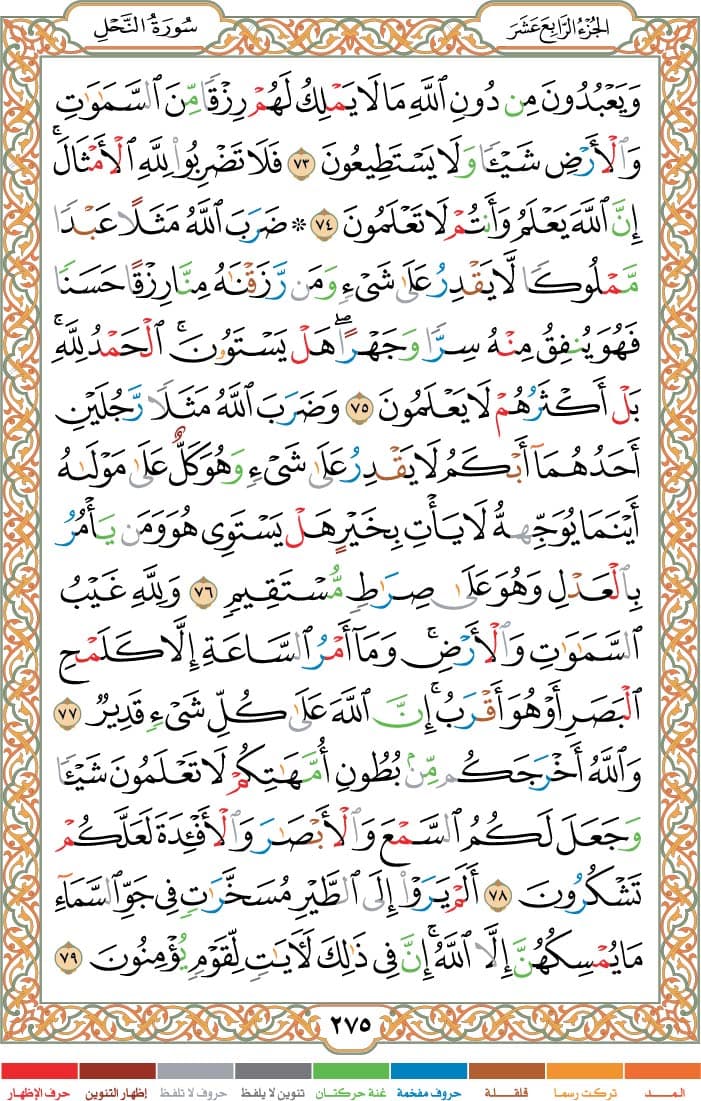 الجزء الرابع عشر
سورة النحل
وَيَعْبُدُونَ مِن دُونِ ٱللَّهِ مَا لَا يَمْلِكُ لَهُمْ رِزْقًا مِّنَ ٱلسَّمَٰوَٰتِ
وَٱلْأَرْضِ شَيْـًٔا وَلَا يَسْتَطِيعُونَ ٧٣ فَلَا تَضْرِبُوا۟ لِلَّهِ ٱلْأَمْثَالَ ۚ
إِنَّ ٱللَّهَ يَعْلَمُ وَأَنتُمْ لَا تَعْلَمُونَ ٧٤ * ضَرَبَ ٱللَّهُ مَثَلًا عَبْدًا
مَّمْلُوكًا لَّا يَقْدِرُ عَلَىٰ شَىْءٍ وَمَن رَّزَقْنَٰهُ مِنَّا رِزْقًا حَسَنًا
فَهُوَ يُنفِقُ مِنْهُ سِرًّا وَجَهْرًا ۖ هَلْ يَسْتَوُۥنَ ۚ ٱلْحَمْدُ لِلَّهِ ۚ
بَلْ أَكْثَرُهُمْ لَا يَعْلَمُونَ ٧٥ وَضَرَبَ ٱللَّهُ مَثَلًا رَّجُلَيْنِ
أَحَدُهُمَآ أَبْكَمُ لَا يَقْدِرُ عَلَىٰ شَىْءٍ وَهُوَ كَلٌّ عَلَىٰ مَوْلَىٰهُ
أَيْنَمَا يُوَجِّههُّ لَا يَأْتِ بِخَيْرٍ هَلْ يَسْتَوِى هُوَ وَمَن يَأْمُرُ
بِٱلْعَدْلِ وَهُوَ عَلَىٰ صِرَٰطٍ مُّسْتَقِيمٍ ٧٦ وَلِلَّهِ غَيْبُ
ٱلسَّمَٰوَٰتِ وَٱلْأَرْضِ ۚ وَمَآ أَمْرُ ٱلسَّاعَةِ إِلَّا كَلَمْحِ
ٱلْبَصَرِ أَوْ هُوَ أَقْرَبُ ۚ إِنَّ ٱللَّهَ عَلَىٰ كُلِّ شَىْءٍ قَدِيرٌ ٧٧
وَٱللَّهُ أَخْرَجَكُم مِّنۢ بُطُونِ أُمَّهَٰتِكُمْ لَا تَعْلَمُونَ شَيْـًٔا
وَجَعَلَ لَكُمُ ٱلسَّمْعَ وَٱلْأَبْصَٰرَ وَٱلْأَفْـِٔدَةَ لَعَلَّكُمْ
تَشْكُرُونَ ٧٨ أَلَمْ يَرَوْا۟ إِلَى ٱلطَّيْرِ مُسَخَّرَٰتٍ فِى جَوِّ ٱلسَّمَآءِ
مَا يُمْسِكُهُنَّ إِلَّا ٱللَّهُ ۗ إِنَّ فِى ذَٰلِكَ لَـَٔايَٰتٍ لِّقَوْمٍ يُؤْمِنُونَ ٧٩
٢٧٥
المـــد تركت رسما قلقـلـة حروف مفخمة غنة حركتان تنوين لا يلفظ حروف لا تلفظ إظهار التنوين حرف الإظهار